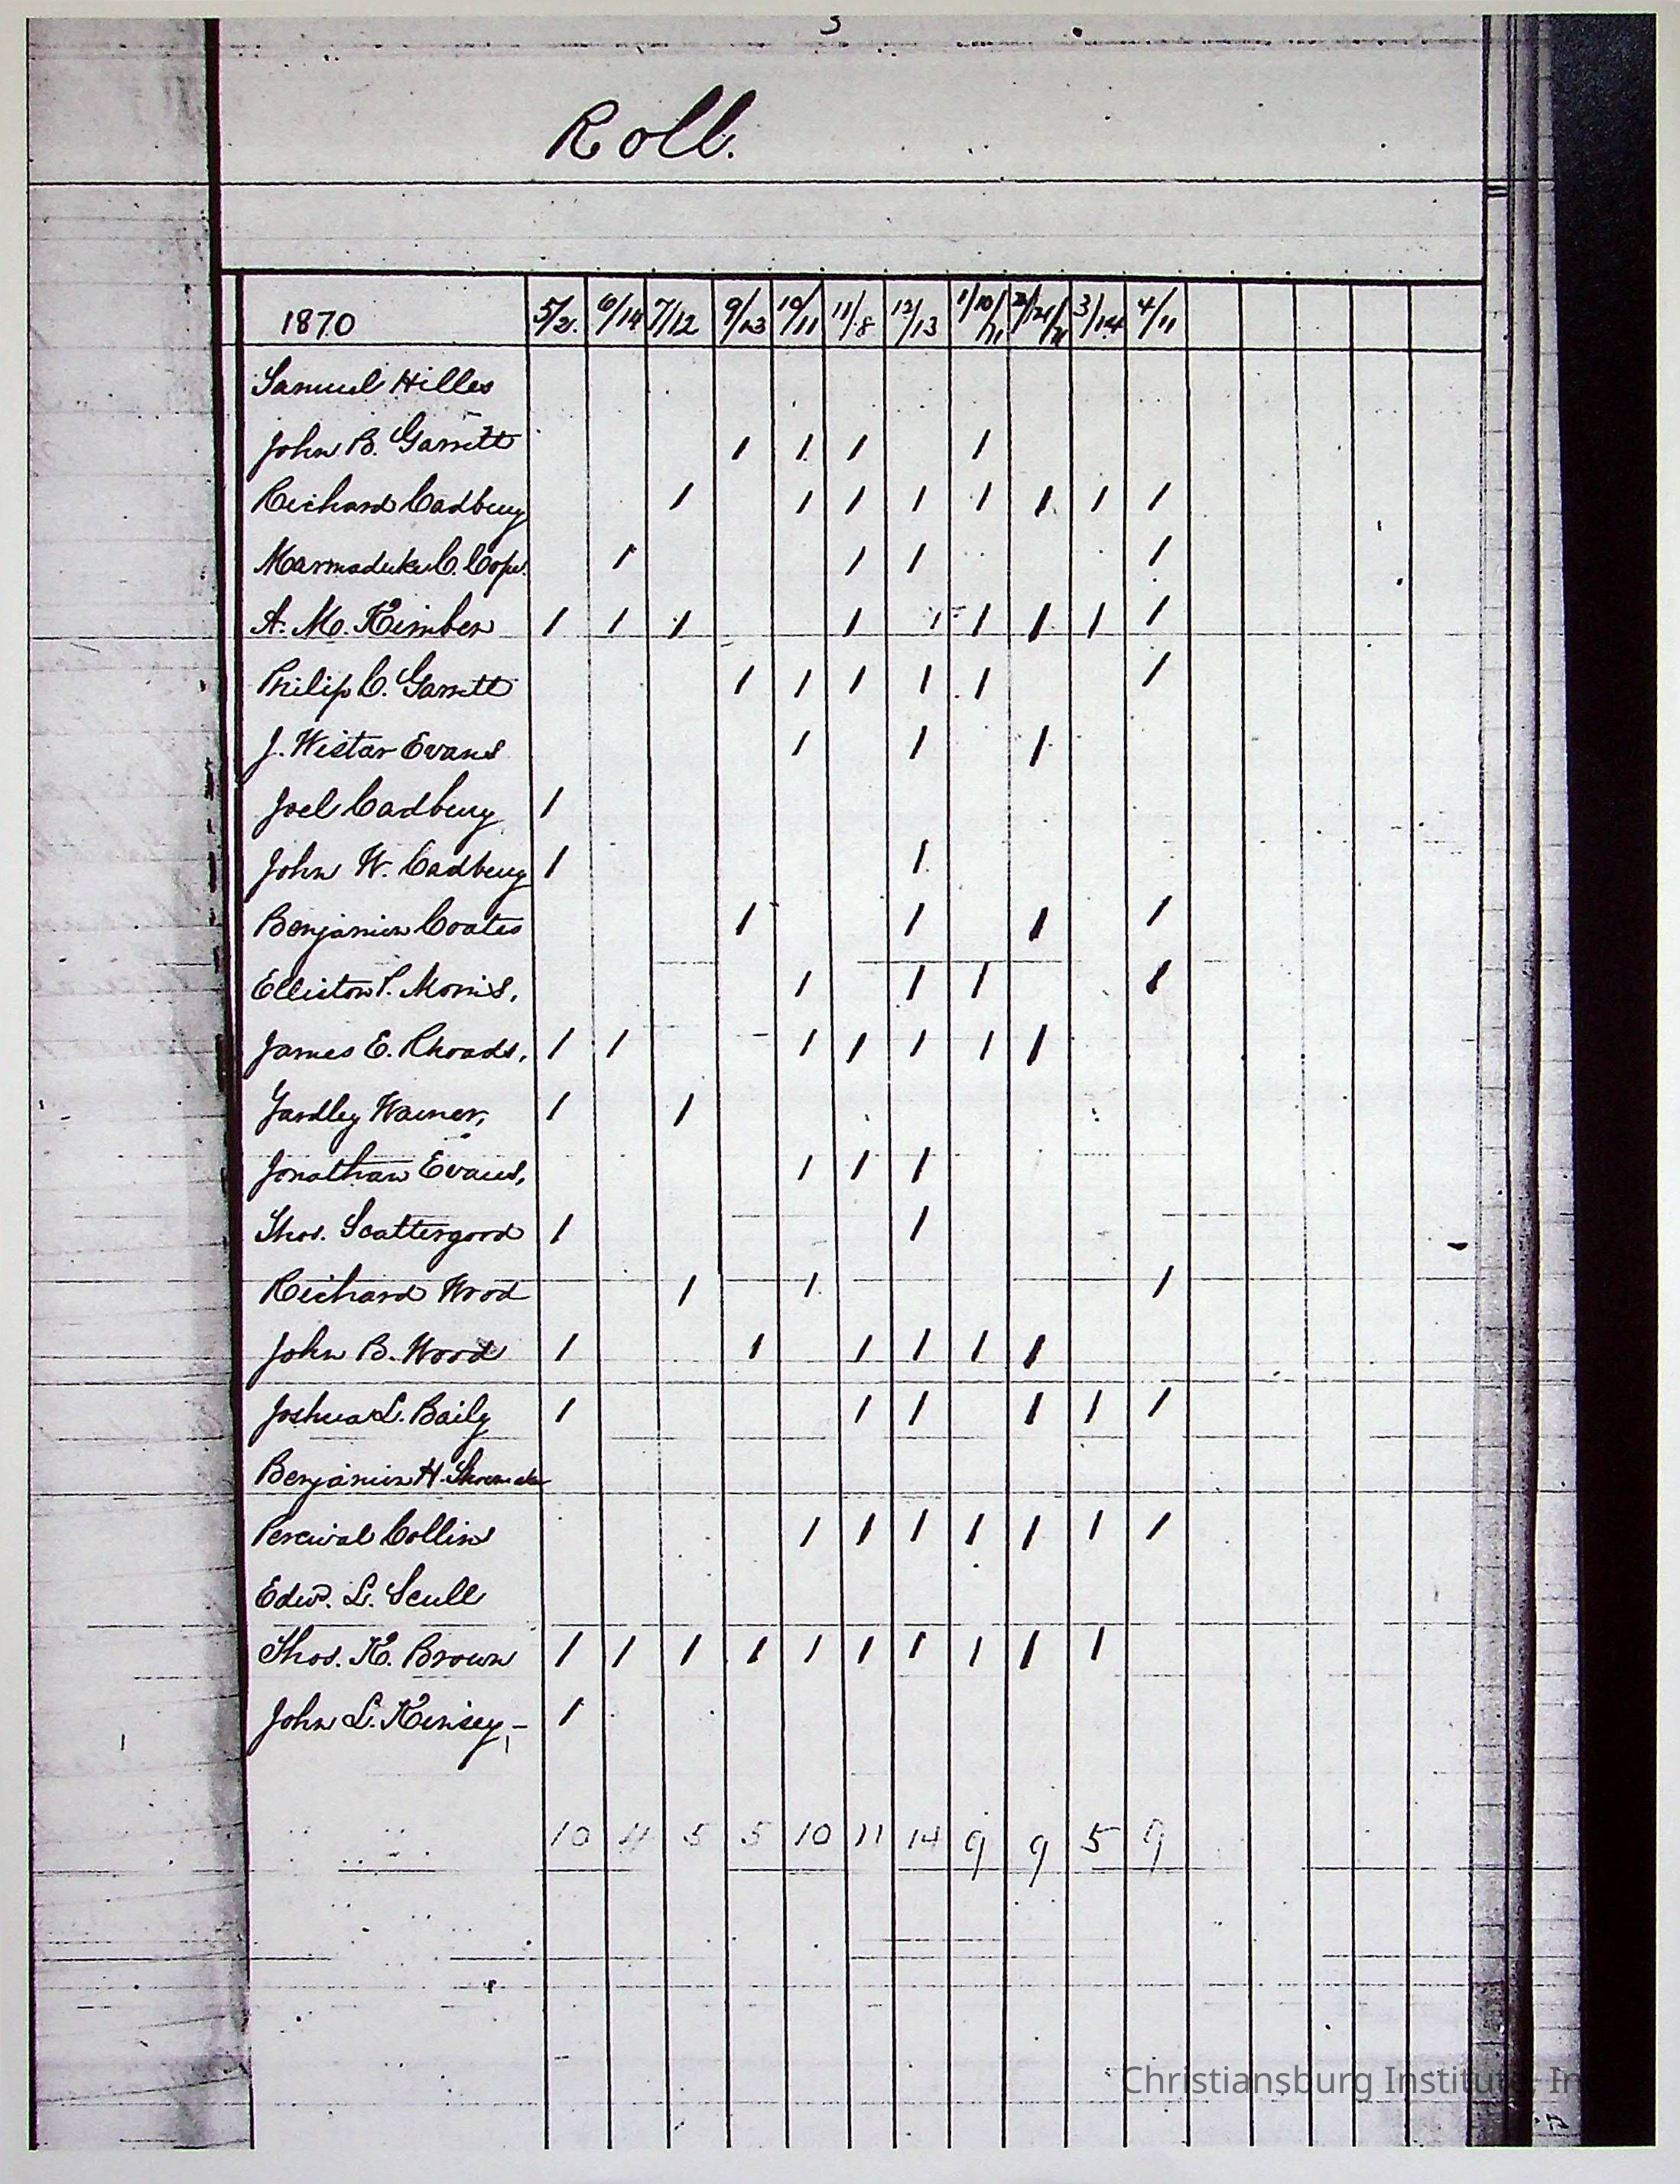 Roll.
1870 5/2. 6/14 7/12 9/13 10/11 11/8 12/13 1/10/71 2/21/71 3/14 4/11
Samuel Hilles
John B. Garrett 1 1 1 1
Richard Cadbury 1 1 1 1 1 1 1 1
Marmaduke C. Cope. 1 1 1 1
A. M. Kimber 1 1 1 1 1 1 1 1 1
Philip C. Garrett 1 1 1 1 1 1
J. Wistar Evans 1 1 1
Joel Cadbury 1
John W. Cadbury 1 1
Benjamin Coates 1 1 1 1
Elliston P. Morris, 1 1 1 1
James E. Rhoads, 1 1 1 1 1 1 1
Yardley Warner, 1 1
Jonathan Evans, 1 1 1
Thos. Scattergood 1 1
Richard Wood 1 1 1
John B. Wood 1 1 1 1 1 1
Joshua L. Baily 1 1 1 1 1 1
Benjamin H. Shoemaker
Percival Collins 1 1 1 1 1 1 1
Edw. L. Scull
Thos. K. Brown 1 1 1 1 1 1 1 1 1 1
John L. Kinsey, – 1
10 4 5 5 10 11 14 9 9 5 9
Christiansburg Institute, In